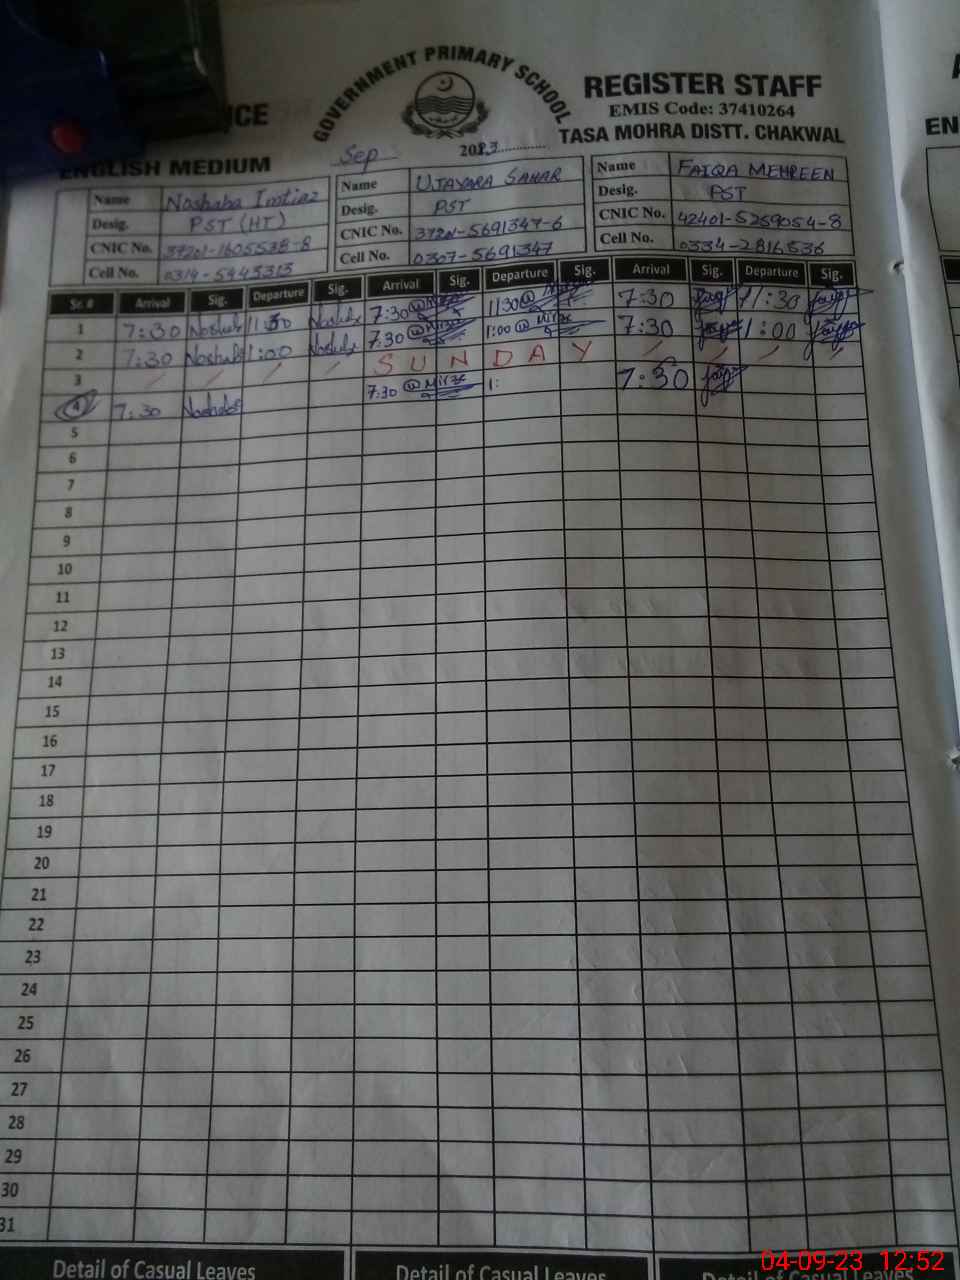 GOVERNMENT PRIMARY SCHOOL
REGISTER STAFF
EMIS Code: 37410264
TASA MOHRA DISTT. CHAKWAL
ENGLISH MEDIUM
Sep 2023
Name Noshaba Imtiaz Name UJAYARA SAHAR Name FAIQA MEHREEN
Desig. PST (HT) Desig. PST Desig. PST
CNIC No. CNIC No. CNIC No. 42401-5259054-8
Cell No. 0314-5445313 Cell No. 0307-5691347 Cell No. 0334-2816536
Sr. # Arrival Sig. Departure Sig. Arrival Sig. Departure Sig. Arrival Sig. Departure Sig.
1 7:30 Noshaba 11:30 Noshaba 7:30 11:30 7:30 11:30
2 7:30 Noshaba 1:00 Noshaba 7:30 1:00 7:30 1:00
3 SUNDAY
4 7:30 Noshaba 7:30 1: 7:30
5
6
7
8
9
10
11
12
13
14
15
16
17
18
19
20
21
22
23
24
25
26
27
28
29
30
31
Detail of Casual Leaves Detail of Casual Leaves Detail of Casual Leaves
04-09-23 12:52